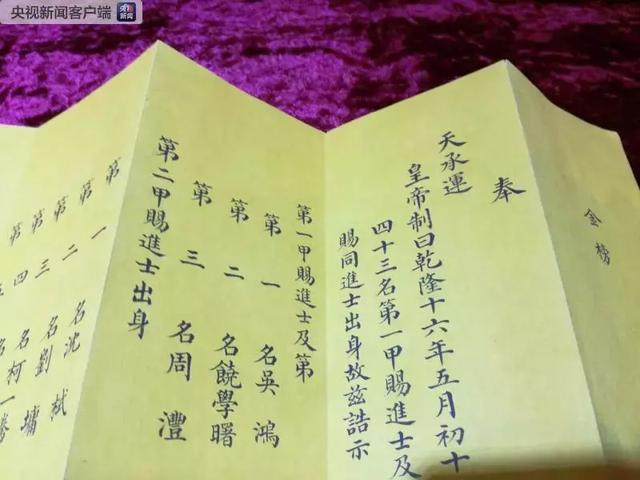 央视新闻客户端
金榜
奉
天承運
皇帝制曰乾隆十六年五月初十
四十三名第一甲賜進士及
賜同進士出身故茲誥示
第一甲賜進士及第
第一名吳鴻
第二名饒學曙
第三名周灃
第二甲賜進士出身
第一名沈栻
第二名劉墉
第三名柯一騰
第四名